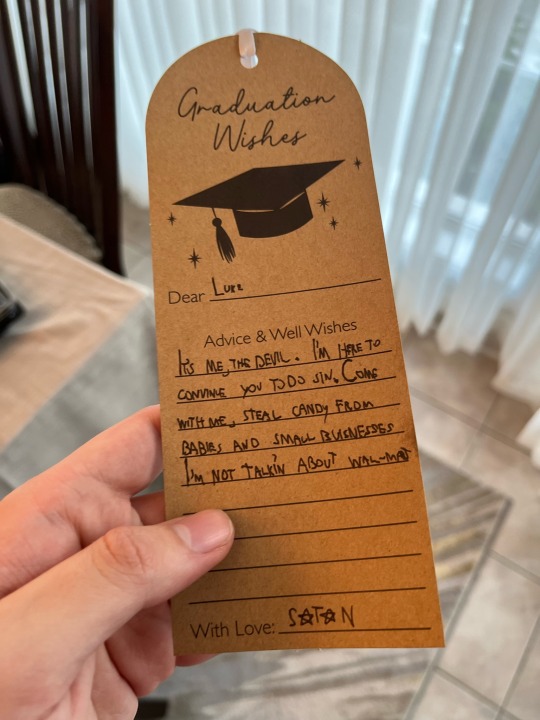 Graduation
Wishes
Dear Luke
Advice & Well Wishes
It's me, the Devil. I'm here to
convine you to do sin. Come
with me, steal candy from
babies and small businesses
I'm not talkin about Wal-Mart
With Love: S☆T☆N